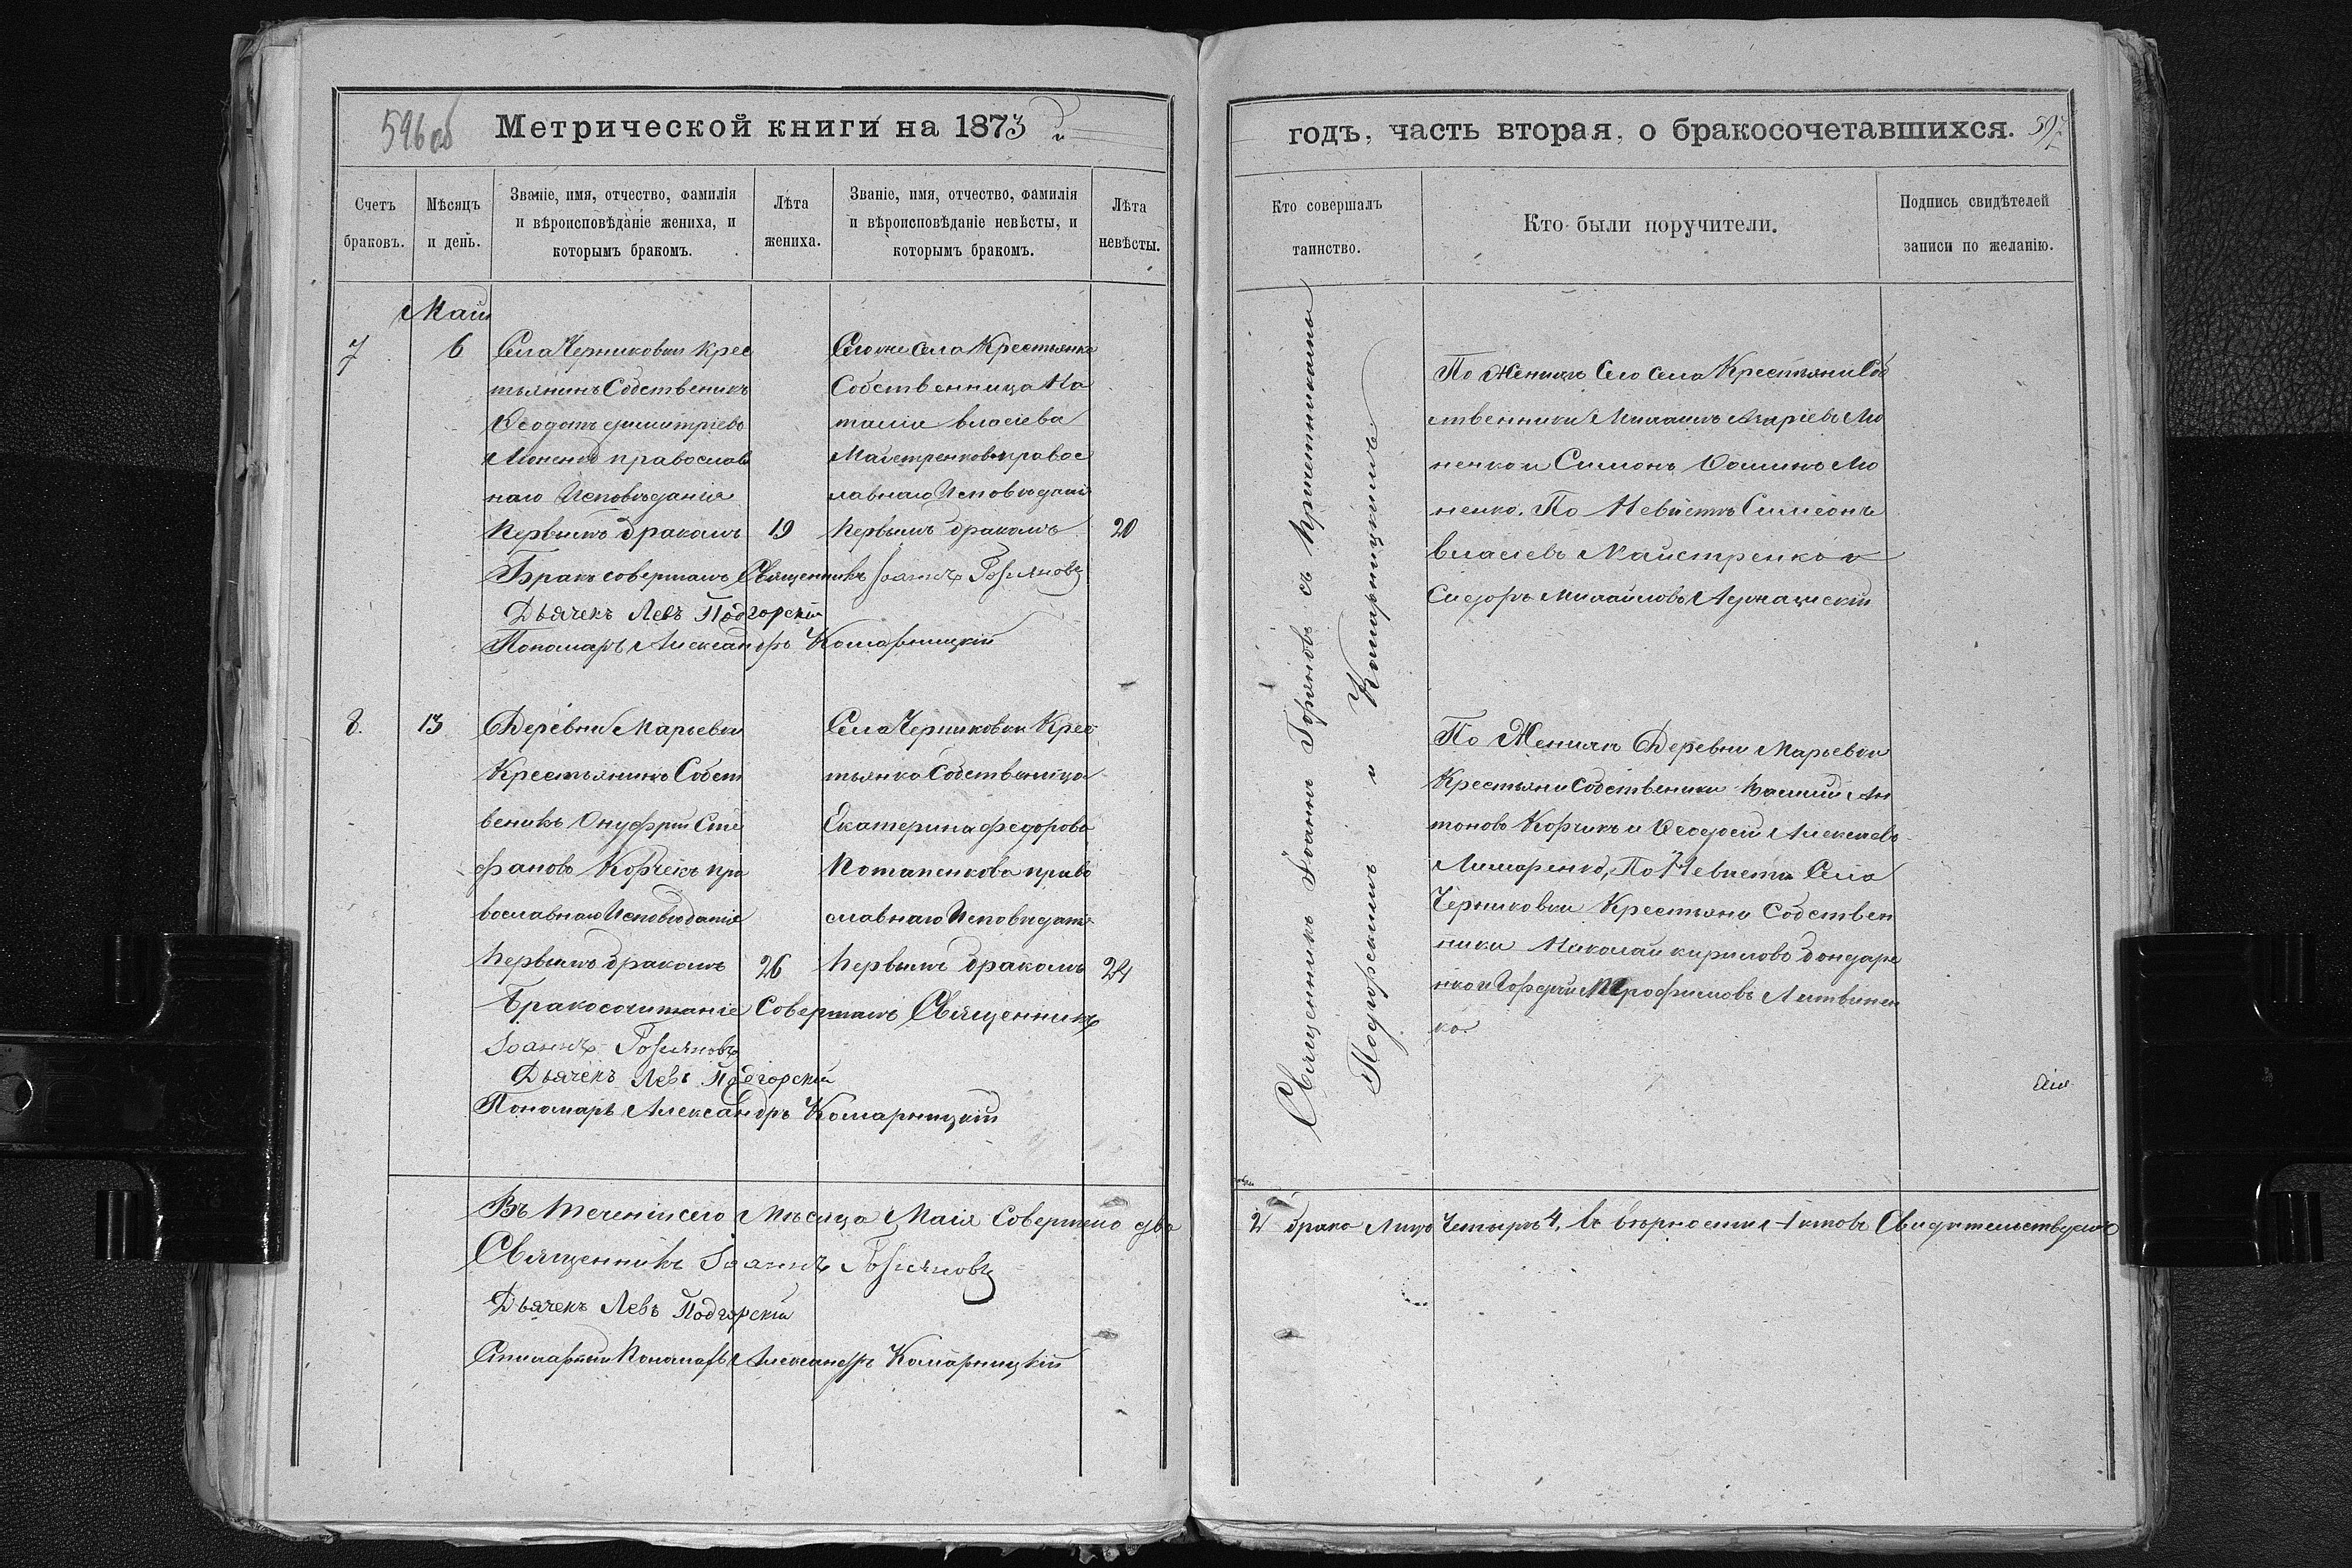 596 об
Метрической книги на 1873 й
Счетъ браковъ.
Мѣсяцъ и день.
Званіе, имя, отчество, фамилія и вѣроисповѣданіе жениха, и которымъ бракомъ.
Лѣта жениха.
Званіе, имя, отчество, фамилія и вѣроисповѣданіе невѣсты, и которымъ бракомъ.
Лѣта невѣсты.
Май
7
6
Села Черниковки Крес
тьянинъ Собственикъ
Ѳеодотъ Димитріевъ
Моненко православ
наго Исповѣданія
Первымъ бракомъ
19
Сего же Села Крестьянка
Собственница На
талія Власіева
Маістренкова правос
лавнаго Исповѣданія
Первымъ бракомъ
20
Бракъ совершалъ Священникъ Іоаннъ
Дьячекъ Левъ Подгорскій
Пономарь Александръ Комарницкій
8.
13
Деревни Марьевки
Крестьянинъ Собст
веникъ Онуфрій Сте
фановъ Корчекъ пра
вославнаго Исповѣданія
Первымъ бракомъ
26
Села Черниковки Крес
тьянка Собственица
Екатерина Федорова
Потапенкова право
славнаго Исповѣдані
Первымъ бракомъ
24
Бракосочитаніе Совершалъ Священникъ
Іоаннъ
Дьячекъ Левъ Подгорскій
Пономарь Александръ Комарницкій
Въ теченіи сего Мѣсяца Маія Совершено два
Священникъ Іоаннъ
Дьячекъ Левъ Подгорскій
Пономарь Александръ Комарницкій
годъ, часть вторая, о бракосочетавшихся.
597
Кто совершалъ таинство.
Кто были поручители.
Подпись свидѣтелей записи по желанію.
Священникъ Іоаннъ съ Причетниками
Подгорскимъ и Комарницкимъ
По Женихѣ Сего Села Крестьяни Соб
ственники Михаилъ Мо
ненко и Симонъ Ѳоминъ Мо
ненко. По Невѣстѣ Симеонъ
Власіевъ Маистренко и
Сидоръ Михаиловъ
По Женихѣ Деревни Марьевки
Крестьяни Собственики Василій Ан
тоновъ Корчикъ и Алексіевъ
Лимаренко, По Невѣстѣ Села
Черниковки Крестьяни Собствен
ники Николай Кириловъ Бондаре
нко и Гордій Трофимовъ Литвинен
ко
2 брака Лицъ Четыре 4. Въ вѣрности Актовъ Свидѣтельствуемъ